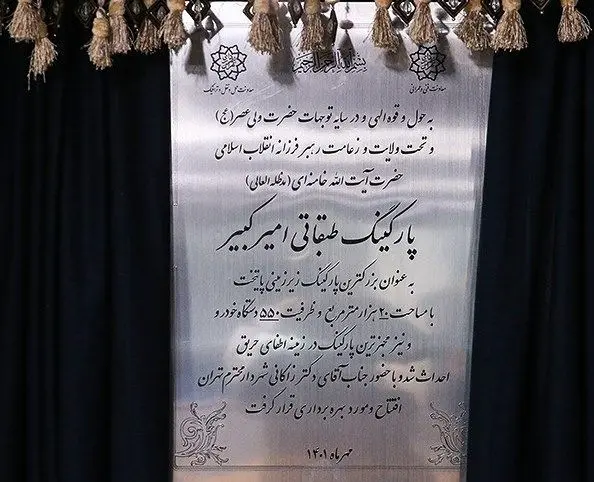 بسم الله الرحمن الرحیم
معاونت فنی و عمرانی
معاونت حمل و نقل و ترافیک
به حول و قوه الهی و در سایه توجهات حضرت ولی عصر (عج)
و تحت ولایت و زعامت رهبر فرزانه انقلاب اسلامی
حضرت آیت الله خامنه ای (مدظله العالی)
پارکینگ طبقاتی امیرکبیر
به عنوان بزرگترین پارکینگ زیرزمینی پایتخت
با مساحت ۲۰ هزار مترمربع و ظرفیت ۵۵۰ دستگاه خودرو
و نیز مجهزترین پارکینگ در زمینه اطفای حریق
احداث شد و با حضور جناب آقای دکتر زاکانی شهردار محترم تهران
افتتاح و مورد بهره برداری قرار گرفت
مهرماه ۱۴۰۱